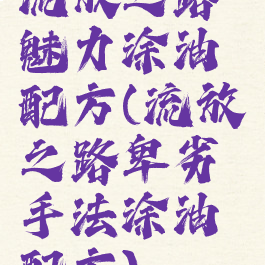 流放之路
魅力涂油
配方(流放
之路卑劣
手法涂油
配方)